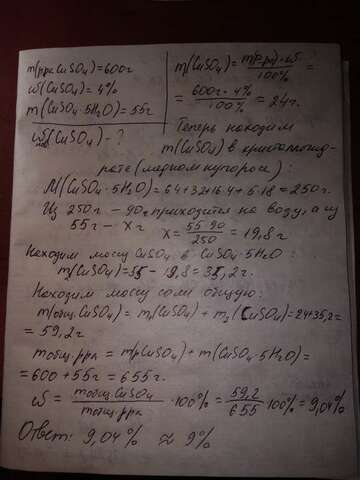 m(ppа CuSO4)=600г
ω(CuSO4)=4%
m(CuSO4·5H2O)=55г
ω(CuSO4)-?
m(CuSO4)=m(p-pa)·ω/100%=
=600г·4%/100%=24г.
Теперь находим
m(CuSO4) в кристаллогид-
рате (медном купоросе):
M(CuSO4·5H2O)=64+32+16·4+5·18=250г.
Из 250г - 90г приходится на воду, а из
55г - xг x=55·90/250=19,8г
Находим массу CuSO4 в CuSO4·5H2O:
m2(CuSO4)=55-19,8=35,2г.
Находим массу соли общую:
m(общ.CuSO4)=m1(CuSO4)+m2(CuSO4)=24+35,2=
=59,2г
mобщ.ppа=m(pCuSO4)+m(CuSO4·5H2O)=
=600+55г=655г.
ω=mобщ.CuSO4/mобщ.ppа·100%=59,2/655·100%=9,04%
Ответ: 9,04% ≈ 9%